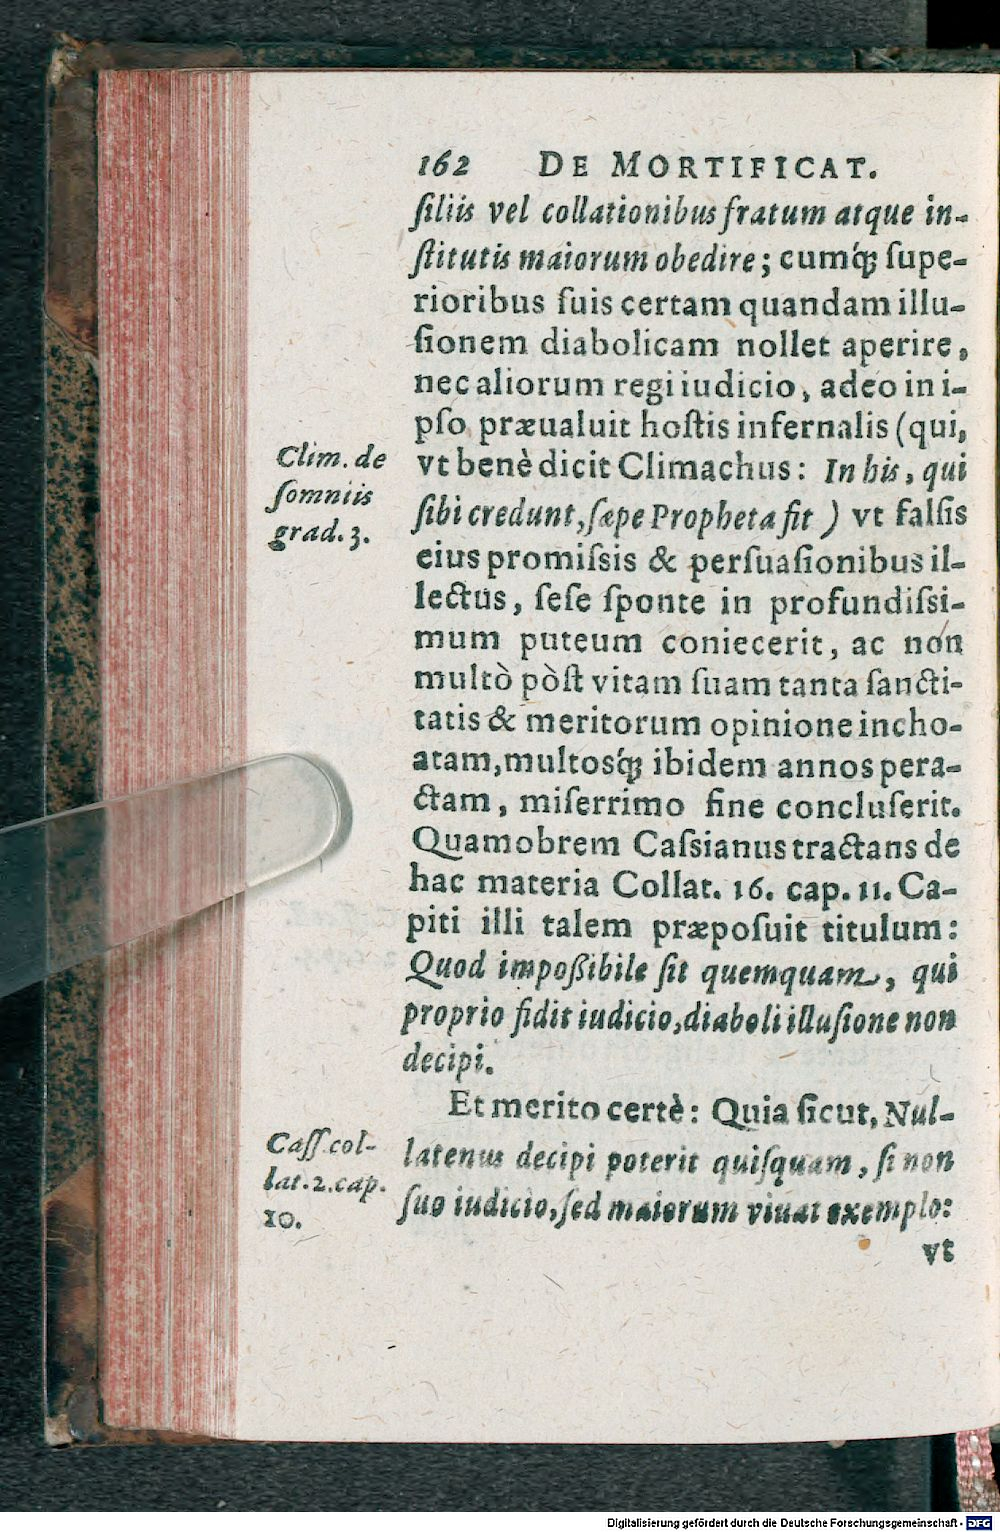 162 DE MORTIFICAT.
ſiliis vel collationibus fratum atque in-
ſtitutis maiorum obedire; cumq́; ſupe-
rioribus ſuis certam quandam illu-
ſionem diabolicam nollet aperire,
nec aliorum regi iudicio, adeo in i-
pſo præualuit hoſtis infernalis (qui,
vt benè dicit Climachus: In his, qui
ſibi credunt, ſæpe Propheta fit) vt falſis
eius promiſsis & perſuaſionibus il-
lectus, ſeſe ſponte in profundiſsi-
mum puteum coniecerit, ac non
multò pòſt vitam ſuam tanta ſancti-
tatis & meritorum opinione incho-
atam, multosq́; ibidem annos pera-
ctam, miſerrimo fine concluſerit.
Quamobrem Caſsianus tractans de
hac materia Collat. 16. cap. 11. Ca-
piti illi talem præpoſuit titulum:
Quod impoßibile ſit quemquam, qui
proprio fidit iudicio, diaboli illuſione non
decipi.
Et merito certè: Quia ſicut, Nul-
latenus decipi poterit quiſquam, ſi non
ſuo iudicio, ſed maiorum viuat exemplo:
vt
Clim. de
ſomniis
grad. 3.
Caſſ. col-
lat. 2. cap.
10.
Digitalisierung gefördert durch die Deutsche Forschungsgemeinschaft - DFG